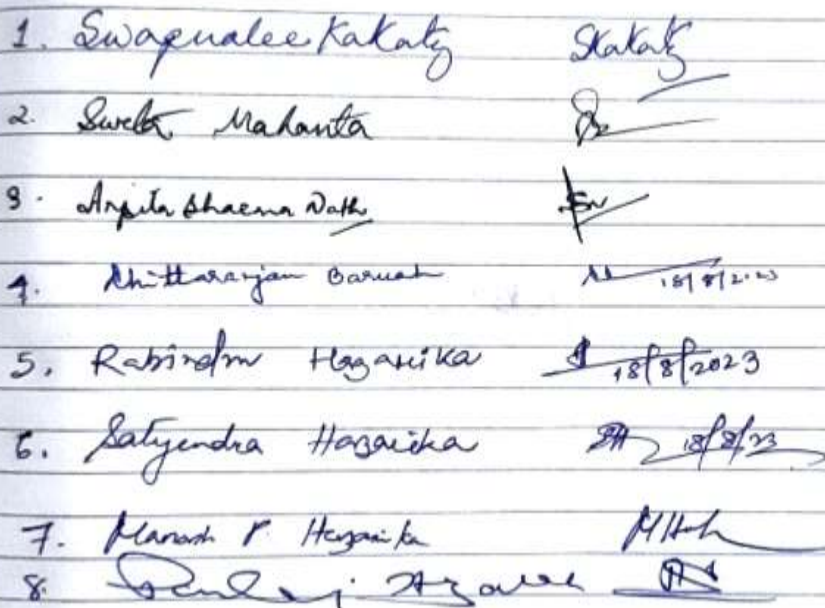 1. Swapnalee Kakaty Skakaty
2. Sweta Mahanta
3. Arpita Sharma Nath
4. Chittaranjan Baruah 18/8/2023
5. Rabindra Hazarika 18/8/2023
6. Satyendra Hazarika 18/8/23
7. Manash P. Hazarika
8.